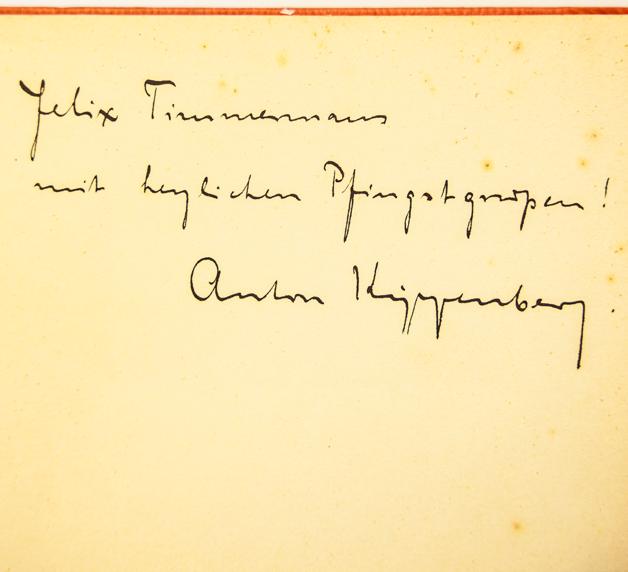 Felix Timmermans
mit herzlichen Pfingstgrüßen!
Anton Kippenberg.